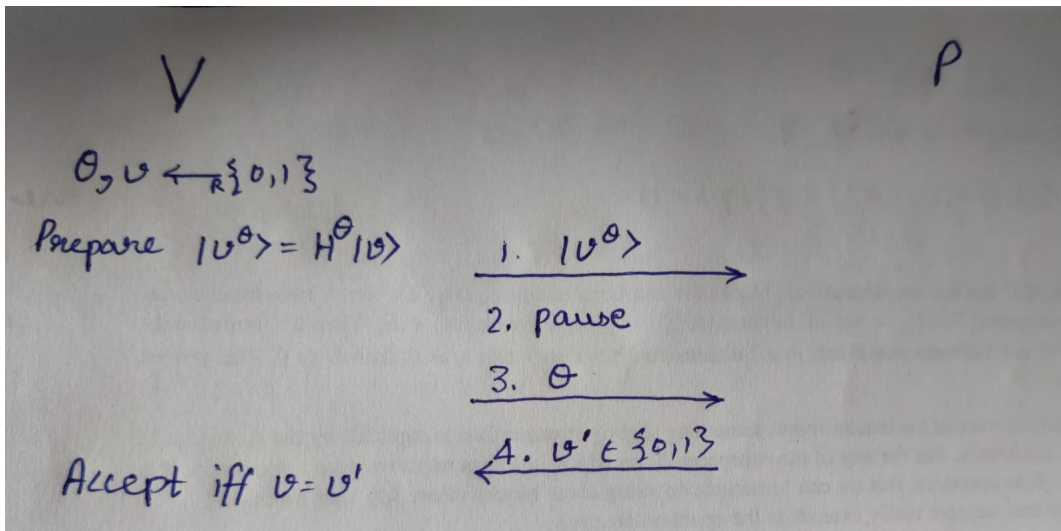 V P
θ, v ←R {0,1}
Prepare |v^θ> = H^θ|v>
1. |v^θ>
2. pause
3. θ
4. v' ∈ {0,1}
Accept iff v = v'